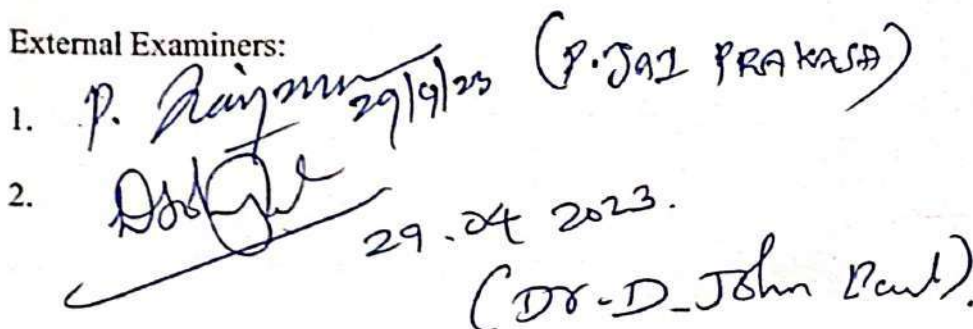 External Examiners:
1. P. 29/9/23 (P. JAI PRAKASH)
2.
29.04 2023.
(Dr. D. John Paul).